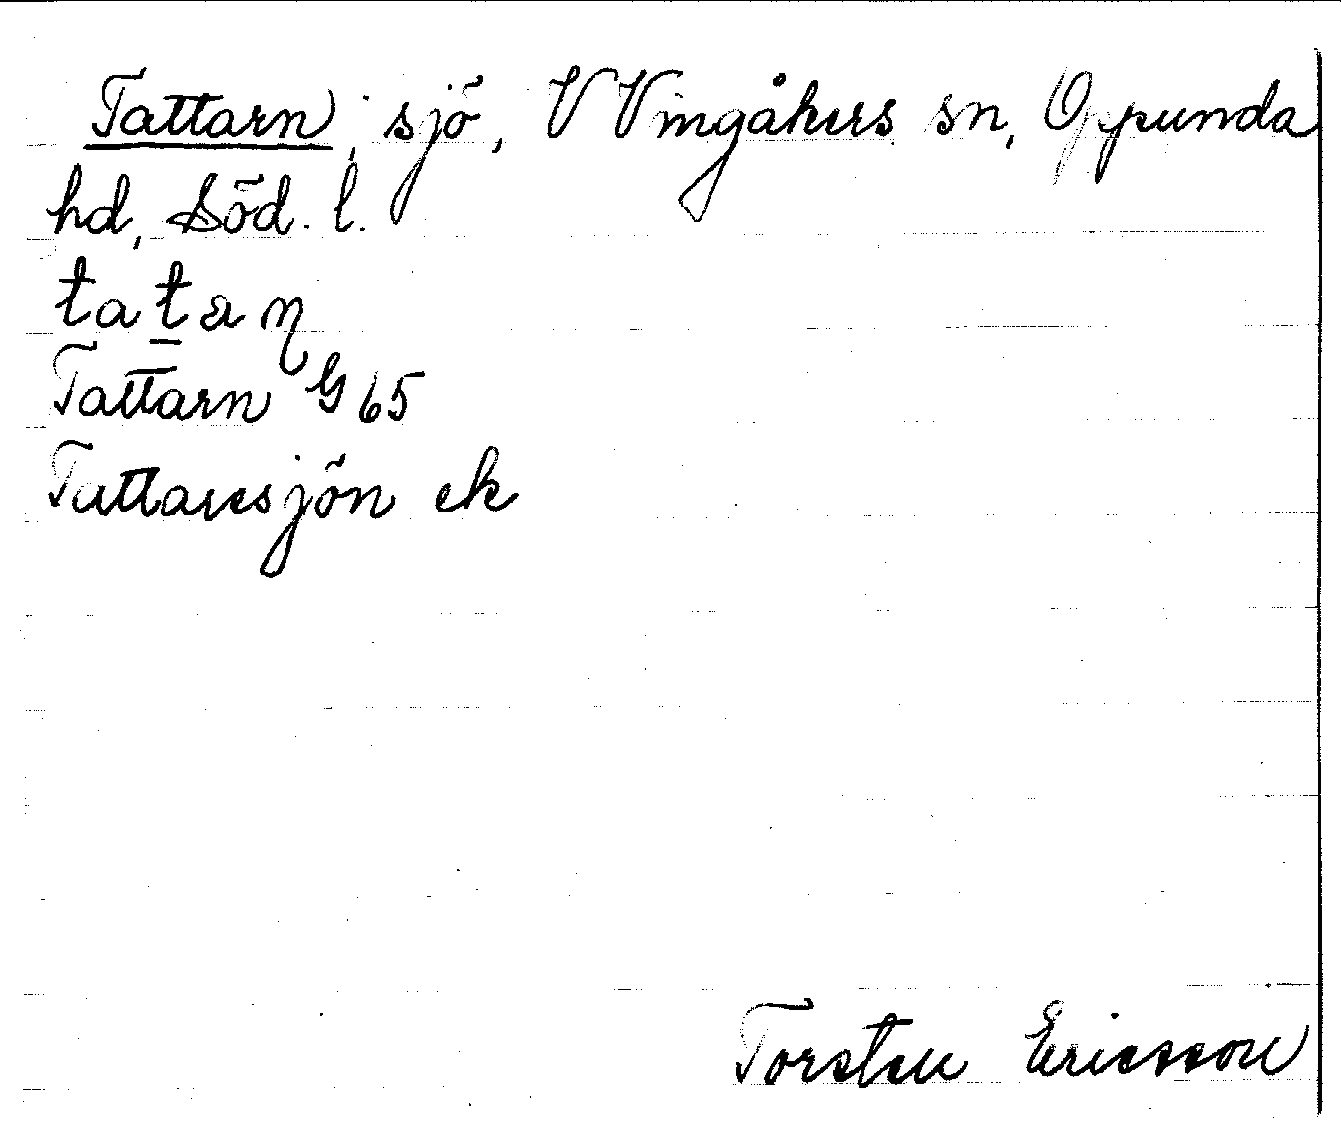 Tattarn, sjö, V Vingåkers sn, Oppunda
hd, Söd. l.
tatan
Tattarn G 65
Tattaresjön ek
Torsten Ericsson